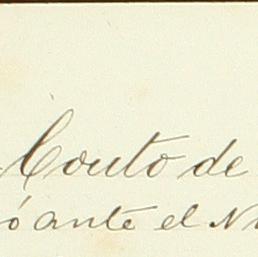 Couto de
ó ante el N